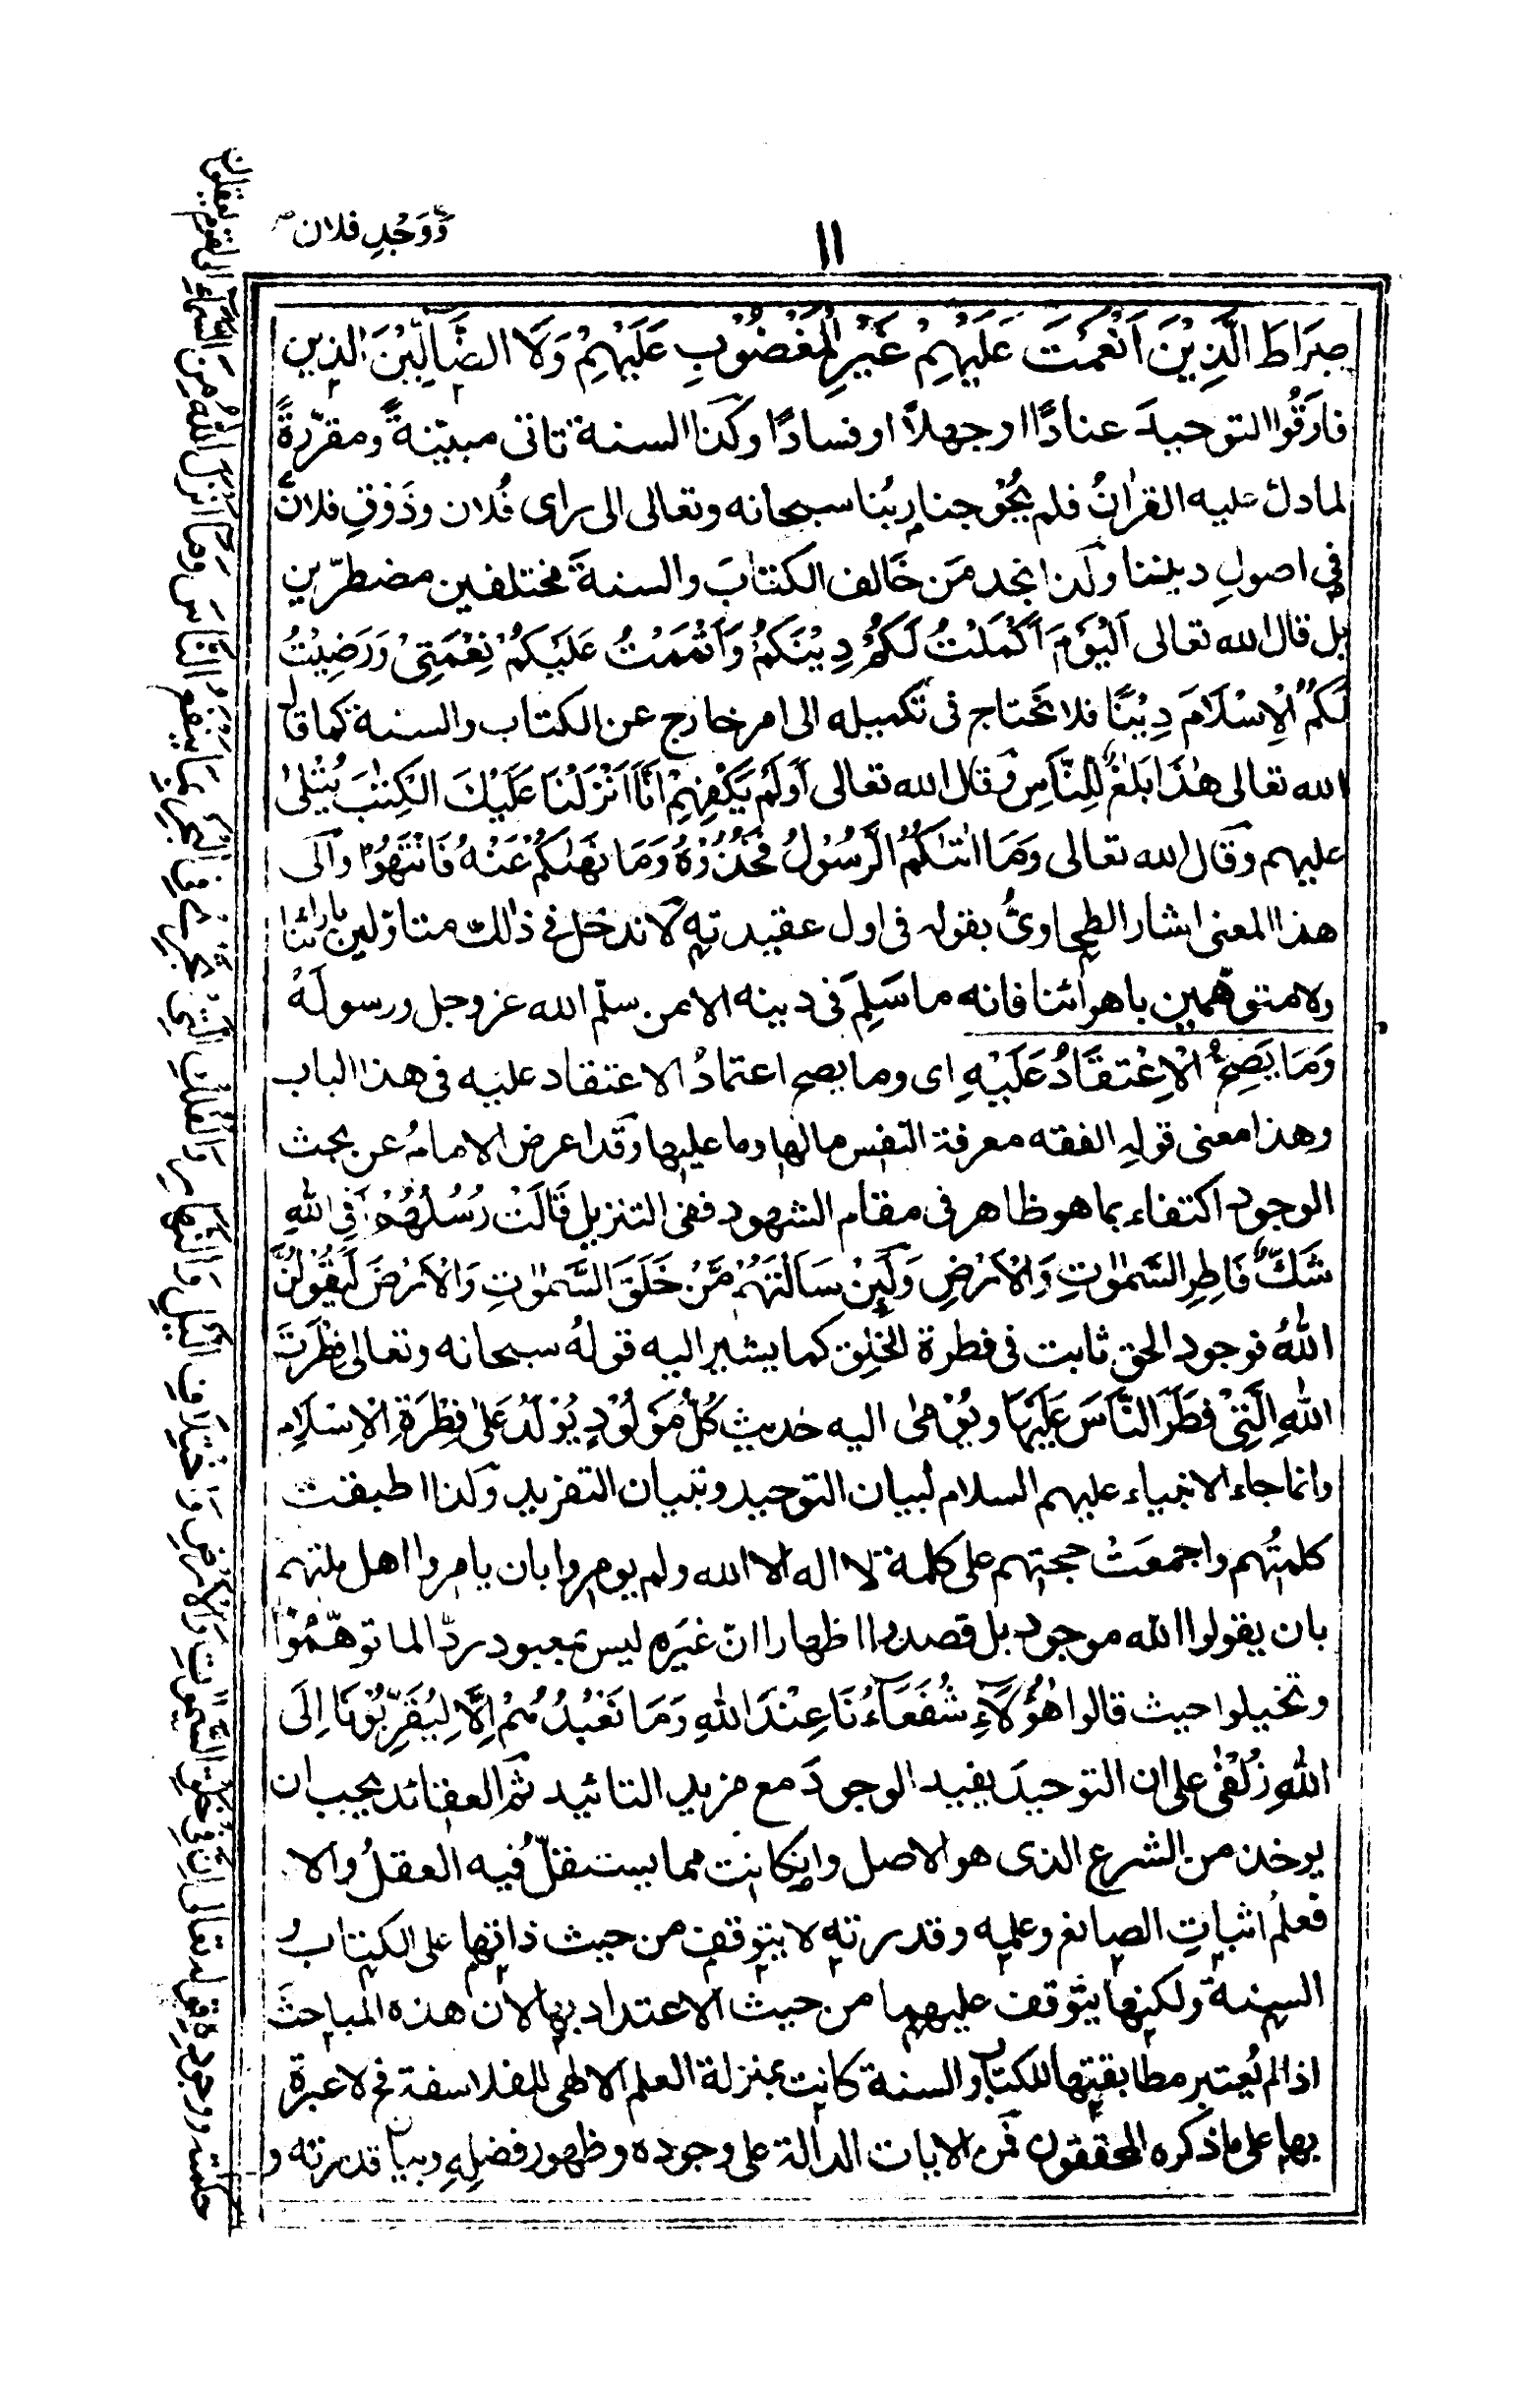 ١١
ووَجْدِ فلان
صِرَاطَ الَّذِيْنَ اَنْعَمْتَ عَلَيْهِمْ غَيْرِ الْمَغْضُوْبِ عَلَيْهِمْ وَلَا الضَّالِّيْنَ الذين
فارَقُوا التوحيدَ عنادًا او جهلاً او فسادًا وكذا السنة تاتى مبيّنةً ومقرّرةً
لمادل عليه القراٰنُ فلم يُحْوِجنا ربُنا سبحانه وتعالى الى راى فُلان وذَوْقِ فلان
فى اصولِ ديننا ولذا نجد مَن خَالف الكتابَ والسنةَ مختلفين مضطرّين
بل قال الله تعالى اَلْيَوْمَ اَكْمَلْتُ لَكُمْ دِيْنَكُمْ وَاَتْمَمْتُ عَلَيْكُمْ نِعْمَتِىْ وَرَضِيْتُ
لَكُمُ الْاِسْلَامَ دِيْنًا فلا نحتاج فى تكميله الى امر خارج عن الكتاب والسنة كما قال
الله تعالى هٰذَا بَلٰغٌ لِّلنَّاسِ وقال الله تعالى اَوَلَمْ يَكْفِهِمْ اَنَّا اَنْزَلْنَا عَلَيْكَ الْكِتٰبَ يُتْلٰى
عليهم وقال الله تعالى وَمَا اٰتٰكُمُ الرَّسُوْلُ فَخُذُوْهُ وَمَا نَهٰكُمْ عَنْهُ فَانْتَهُوْا والى
هذا المعنى اشار الطحاوىُّ بقوله فى اول عقيدته لا ندخل فى ذالك متاوّلين بارائنا
ولا متوهّمين باهوائنا فانه ما سَلِمَ فى دينه الا من سلّم الله عز وجل ورسولَهُ
وَمَا يَصِحُّ الْاِعْتقَادُ عَلَيْهِ اى وما يصح اعتمادُ الاعتقاد عليه فى هذا الباب
وهذا معنى قولِه الفقه معرفة النفس مالها وما عليها وقد اعرض الامامُ عن بحث
الوجود اكتفاء بما هو ظاهر فى مقام الشهود ففى التنزيل قَالَتْ رُسُلُهُمْ اَفِى اللهِ
شَكٌّ فَاطِرِ السَّمٰوٰتِ وَالْاَرْضِ وَلَئِنْ سَاَلْتَهُمْ مَّنْ خَلَقَ السَّمٰوٰتِ وَالْاَرْضَ لَيَقُوْلُنَّ
اللهُ فوجود الحق ثابت فى فطرة الخلق كما يشير اليه قولهُ سبحانه وتعالى فِطْرَتَ
اللهِ الَّتِىْ فَطَرَ النَّاسَ عَلَيْهَا ويُوْمٰى اليه حديث كُلُّ مَوْلُوْدٍ يُوْلَدُ عَلٰى فِطْرَةِ الْاِسْلَامِ
وانما جاء الانبياء عليهم السلام لبيان التوحيد وتبيان التفريد ولذا اطبقت
كلمتُهم واجمعَتْ حجتهم على كلمة لا اله الا الله ولم يومروا بان يامروا اهل ملتهم
بان يقولوا الله موجود بل قصدوا اظهارا انّ غيَره ليس بمعبود ردّا لما توهّمُوْا
وتخيلوا حيث قالوا هٰؤُلَاءِ شُفَعَاءُنَا عِنْدَ اللهِ وَمَا نَعْبُدُهُمْ اِلَّا لِيُقَرِّبُوْنَا اِلَى
اللهِ زُلْفٰى على ان التوحيدَ يفيد الوجودَ مع مزيد التائيد ثم العقائد يجب ان
يوخذ من الشرع الذى هو الاصل وان كانت مما يستقلّ فيه العقلُ والا
فعلمُ اثباتِ الصانع وعلمِه وقدرتهِ لا يتوقف من حيث ذاتها على الكتاب و
السنة ولكنها يتوقف عليهما من حيث الاعتداد بها لان هذه المباحثَ
اذا لم يُعتبر مطابقتها للكتاب والسنة كانت بمنزلة العلم الالهى للفلاسفة فح لا عبرة
بها على ماذكره المحققون فمن الايات الدالة على وجوده وظهور فضلِهِ وبيان قدرته و
حكمته ووجودِهٖ قوله تعالى اِنَّ فِىْ خَلْقِ السَّمٰوٰتِ وَالْاَرْضِ وَاخْتِلَافِ الَّيْلِ وَالنَّهَارِ وَالْفُلْكِ الَّتِىْ تَجْرِىْ فِى الْبَحْرِ بِمَا يَنْفَعُ النَّاسَ وَمَا اَنْزَلَ اللهُ مِنَ السَّمَاءِ الاٰية لقوم يعقلون